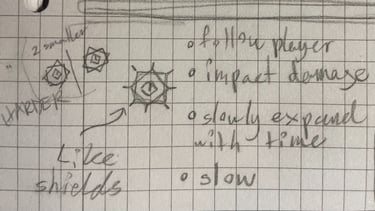 2 smaller
HARDER
Like
shields
• follow player
• impact damage
• slowly expand
with time
• slow